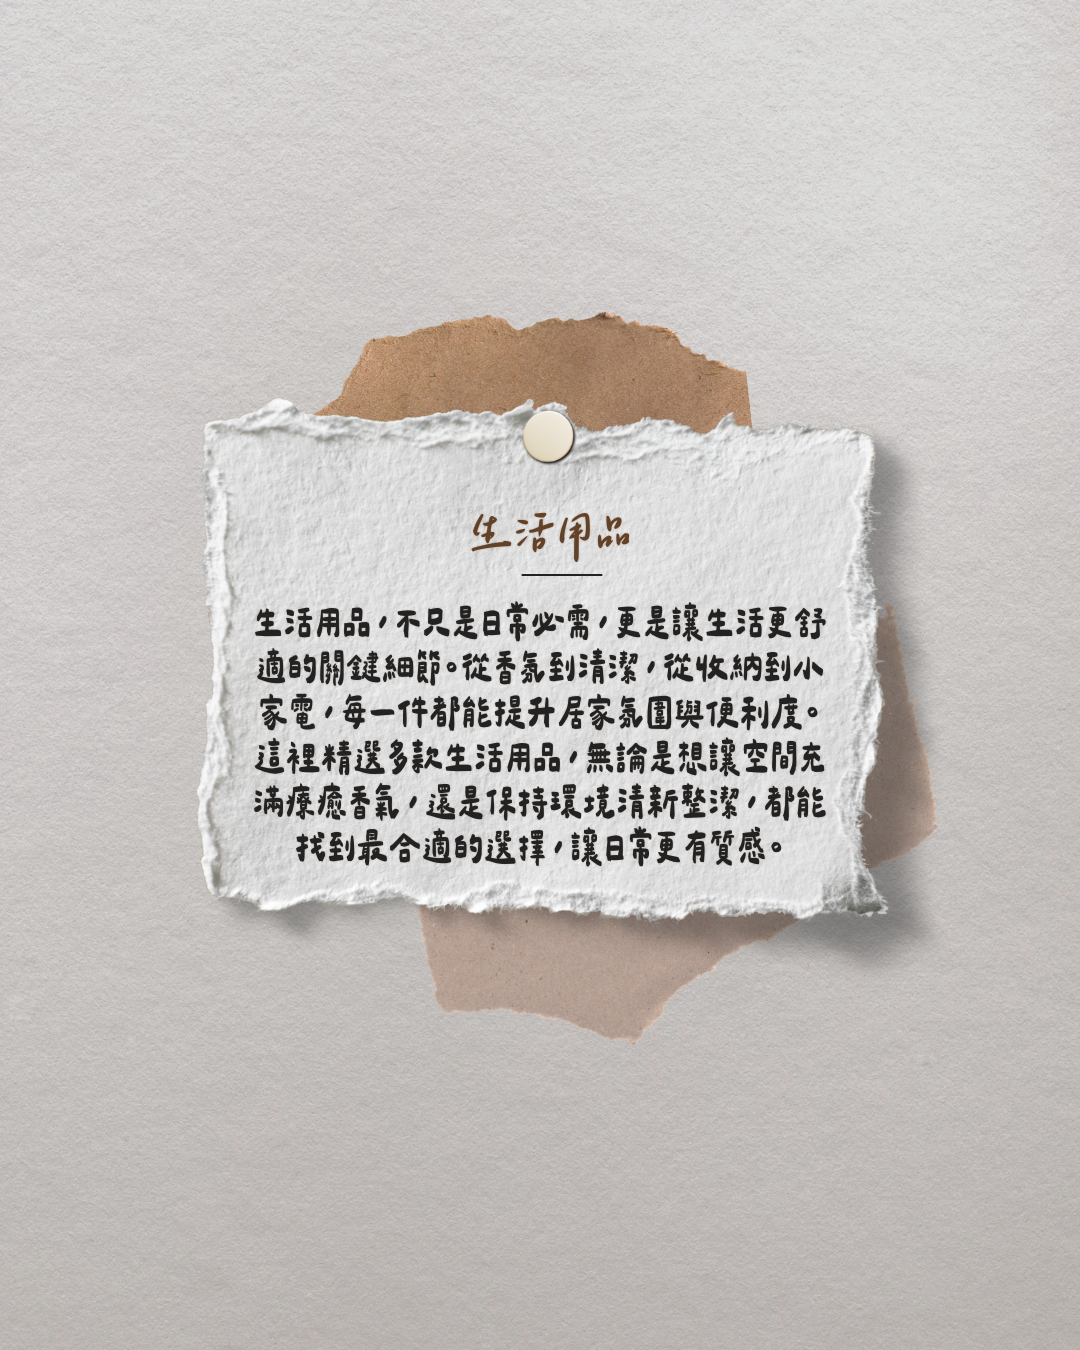 生活用品
生活用品，不只是日常必需，更是讓生活更舒
適的關鍵細節。從香氛到清潔，從收納到小
家電，每一件都能提升居家氛圍與便利度。
這裡精選多款生活用品，無論是想讓空間充
滿療癒香氣，還是保持環境清新整潔，都能
找到最合適的選擇，讓日常更有質感。